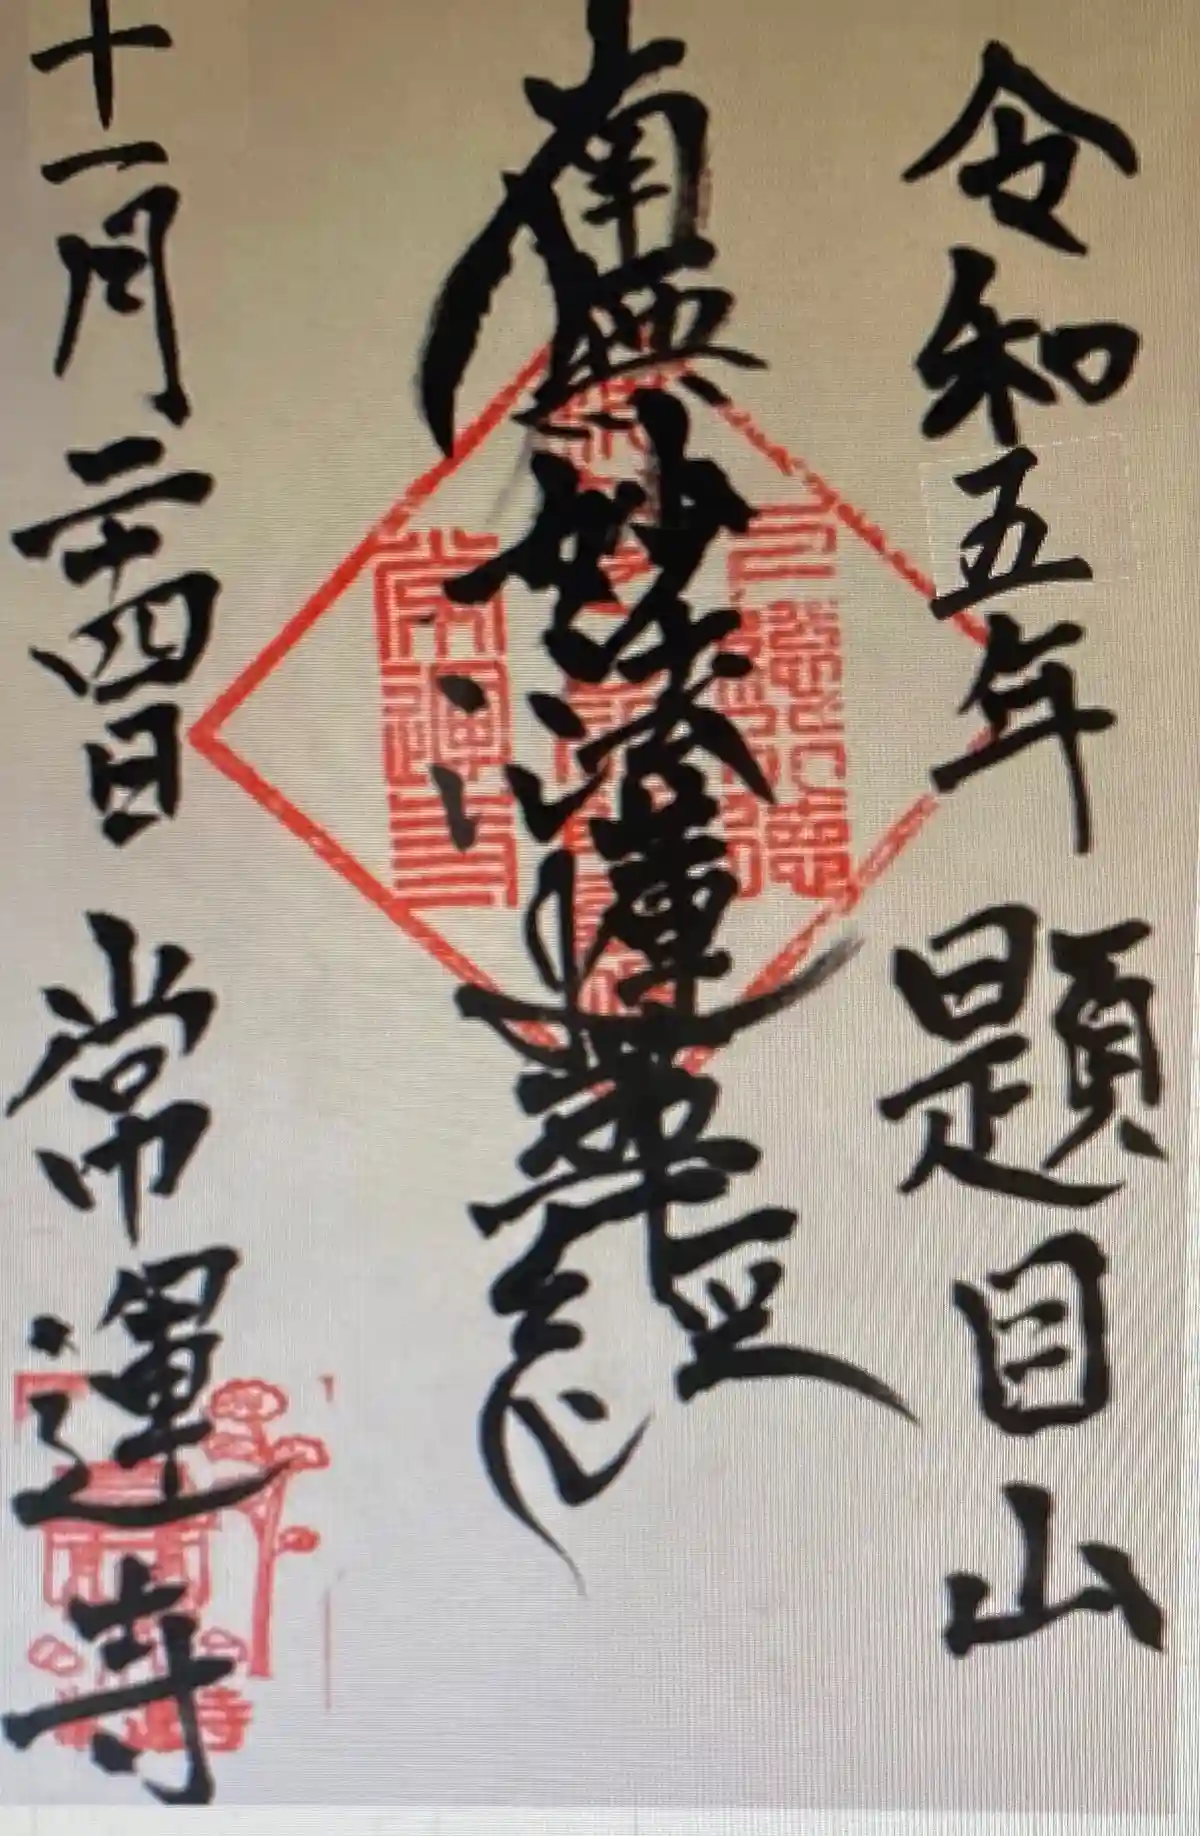 令和五年 題目山
南無妙法蓮華経
十一月二十四日 常運寺